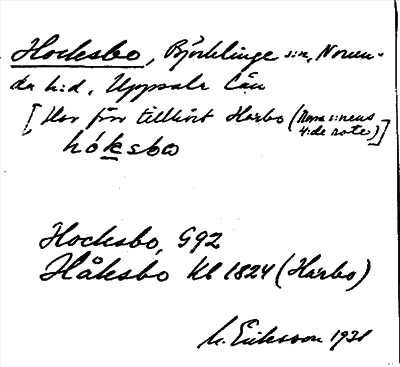 Hocksbo, Björklinge s:n, Norun-
da h:d, Uppsala län
[Har förr tillhört Harbo (Nora s:ns
4:de rote)]
hóksbo
Hocksbo, G92
Håksbo Kb 1824 (Harbo)
M. Eriksson 1931